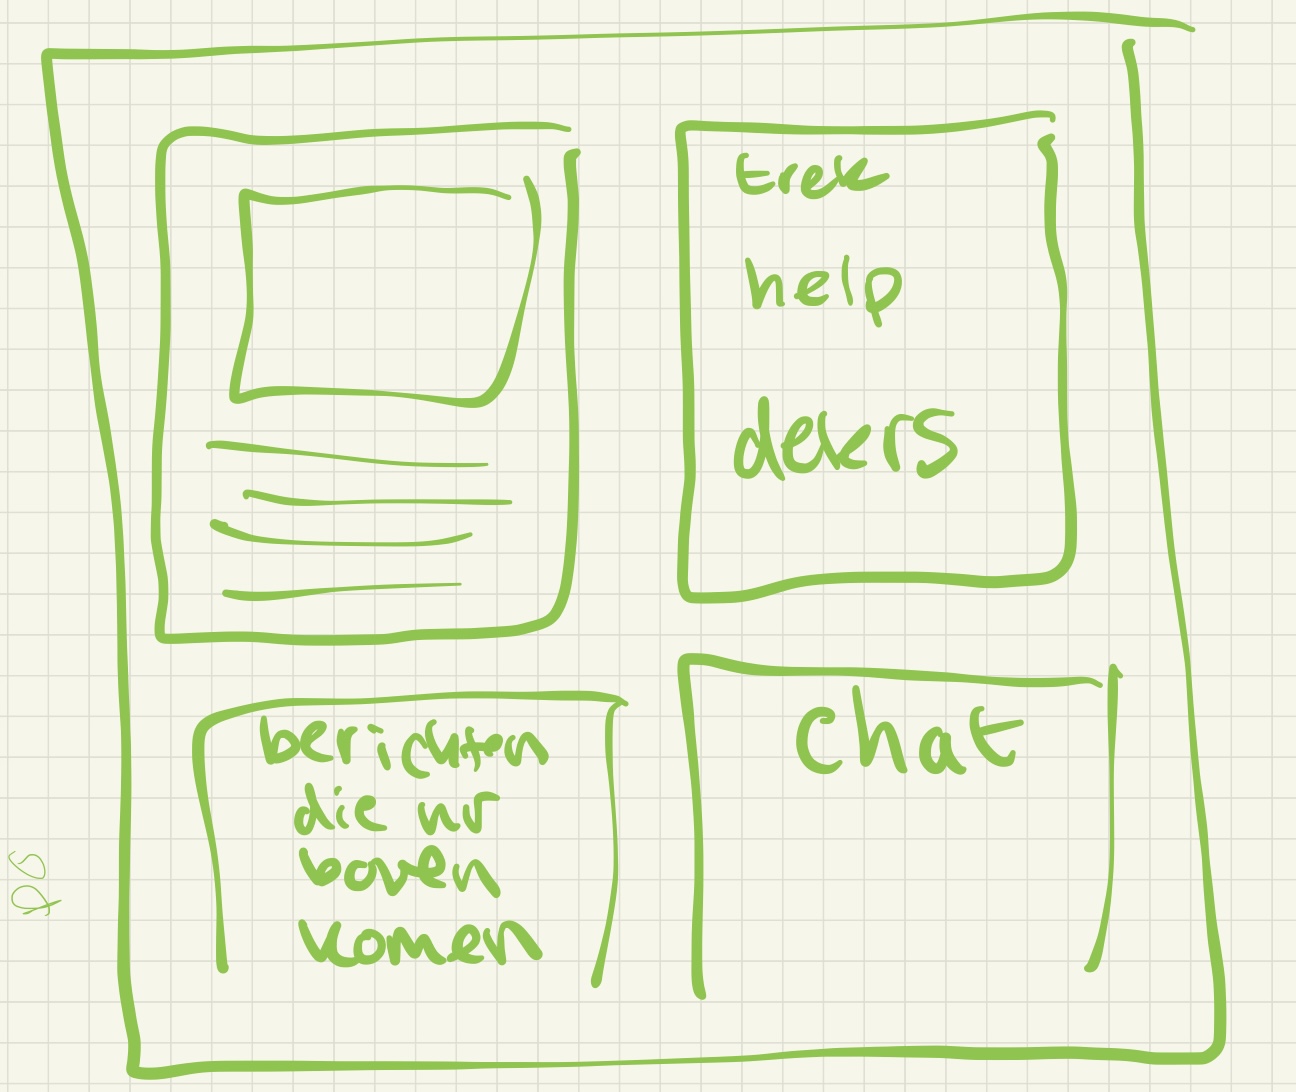 trek
help
dekers
berichten
die nr
boven
komen
chat